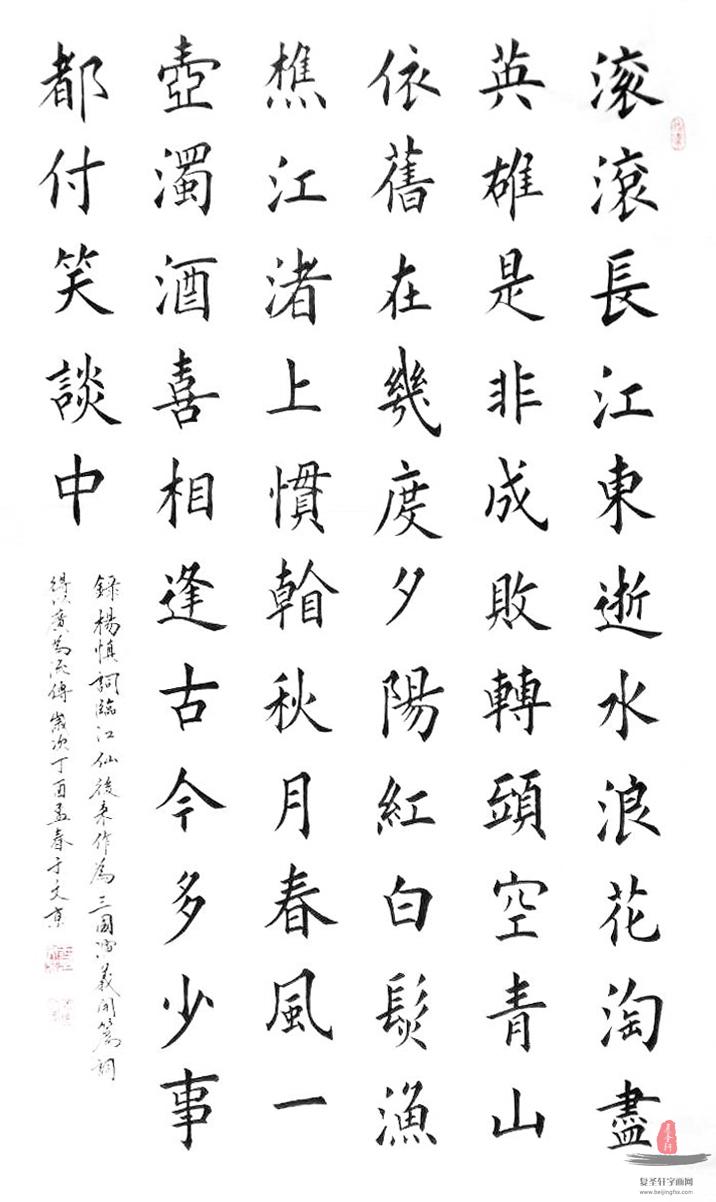 滚滾長江東逝水浪花淘盡
英雄是非成敗轉頭空青山
依舊在幾度夕陽紅白髮漁
樵江渚上慣看秋月春風一
壺濁酒喜相逢古今多少事
都付笑談中
錄楊慎詞臨江仙後來作為三國演義開篇詞
得以廣為流傳歲次丁酉孟春于文
复圣轩字画网